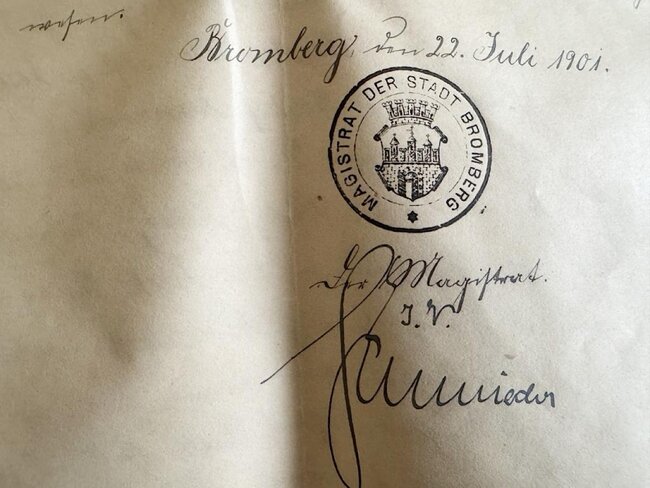 wesen.
Bromberg, den 22. Juli 1901.
MAGISTRAT DER STADT BROMBERG
Der Magistrat.
J. V.
Schmieder